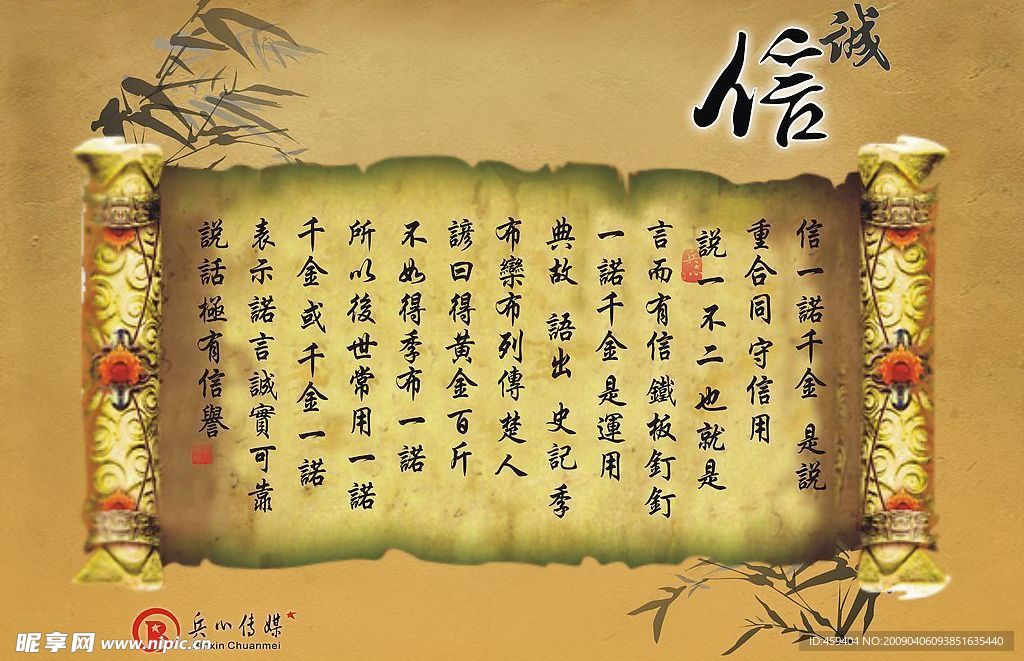 誠
信
信一諾千金 是説
重合同守信用
説一不二也就是
言而有信鐵板釘釘
一諾千金是運用
典故 語出 史記季
布欒布列傳楚人
諺曰得黃金百斤
不如得季布一諾
所以後世常用一諾
千金或千金一諾
表示諾言誠實可靠
説話極有信譽
兵心传媒
昵享网 www.nipic.cn
xin Chuanmei
ID:459404 NO:20090406093851635440